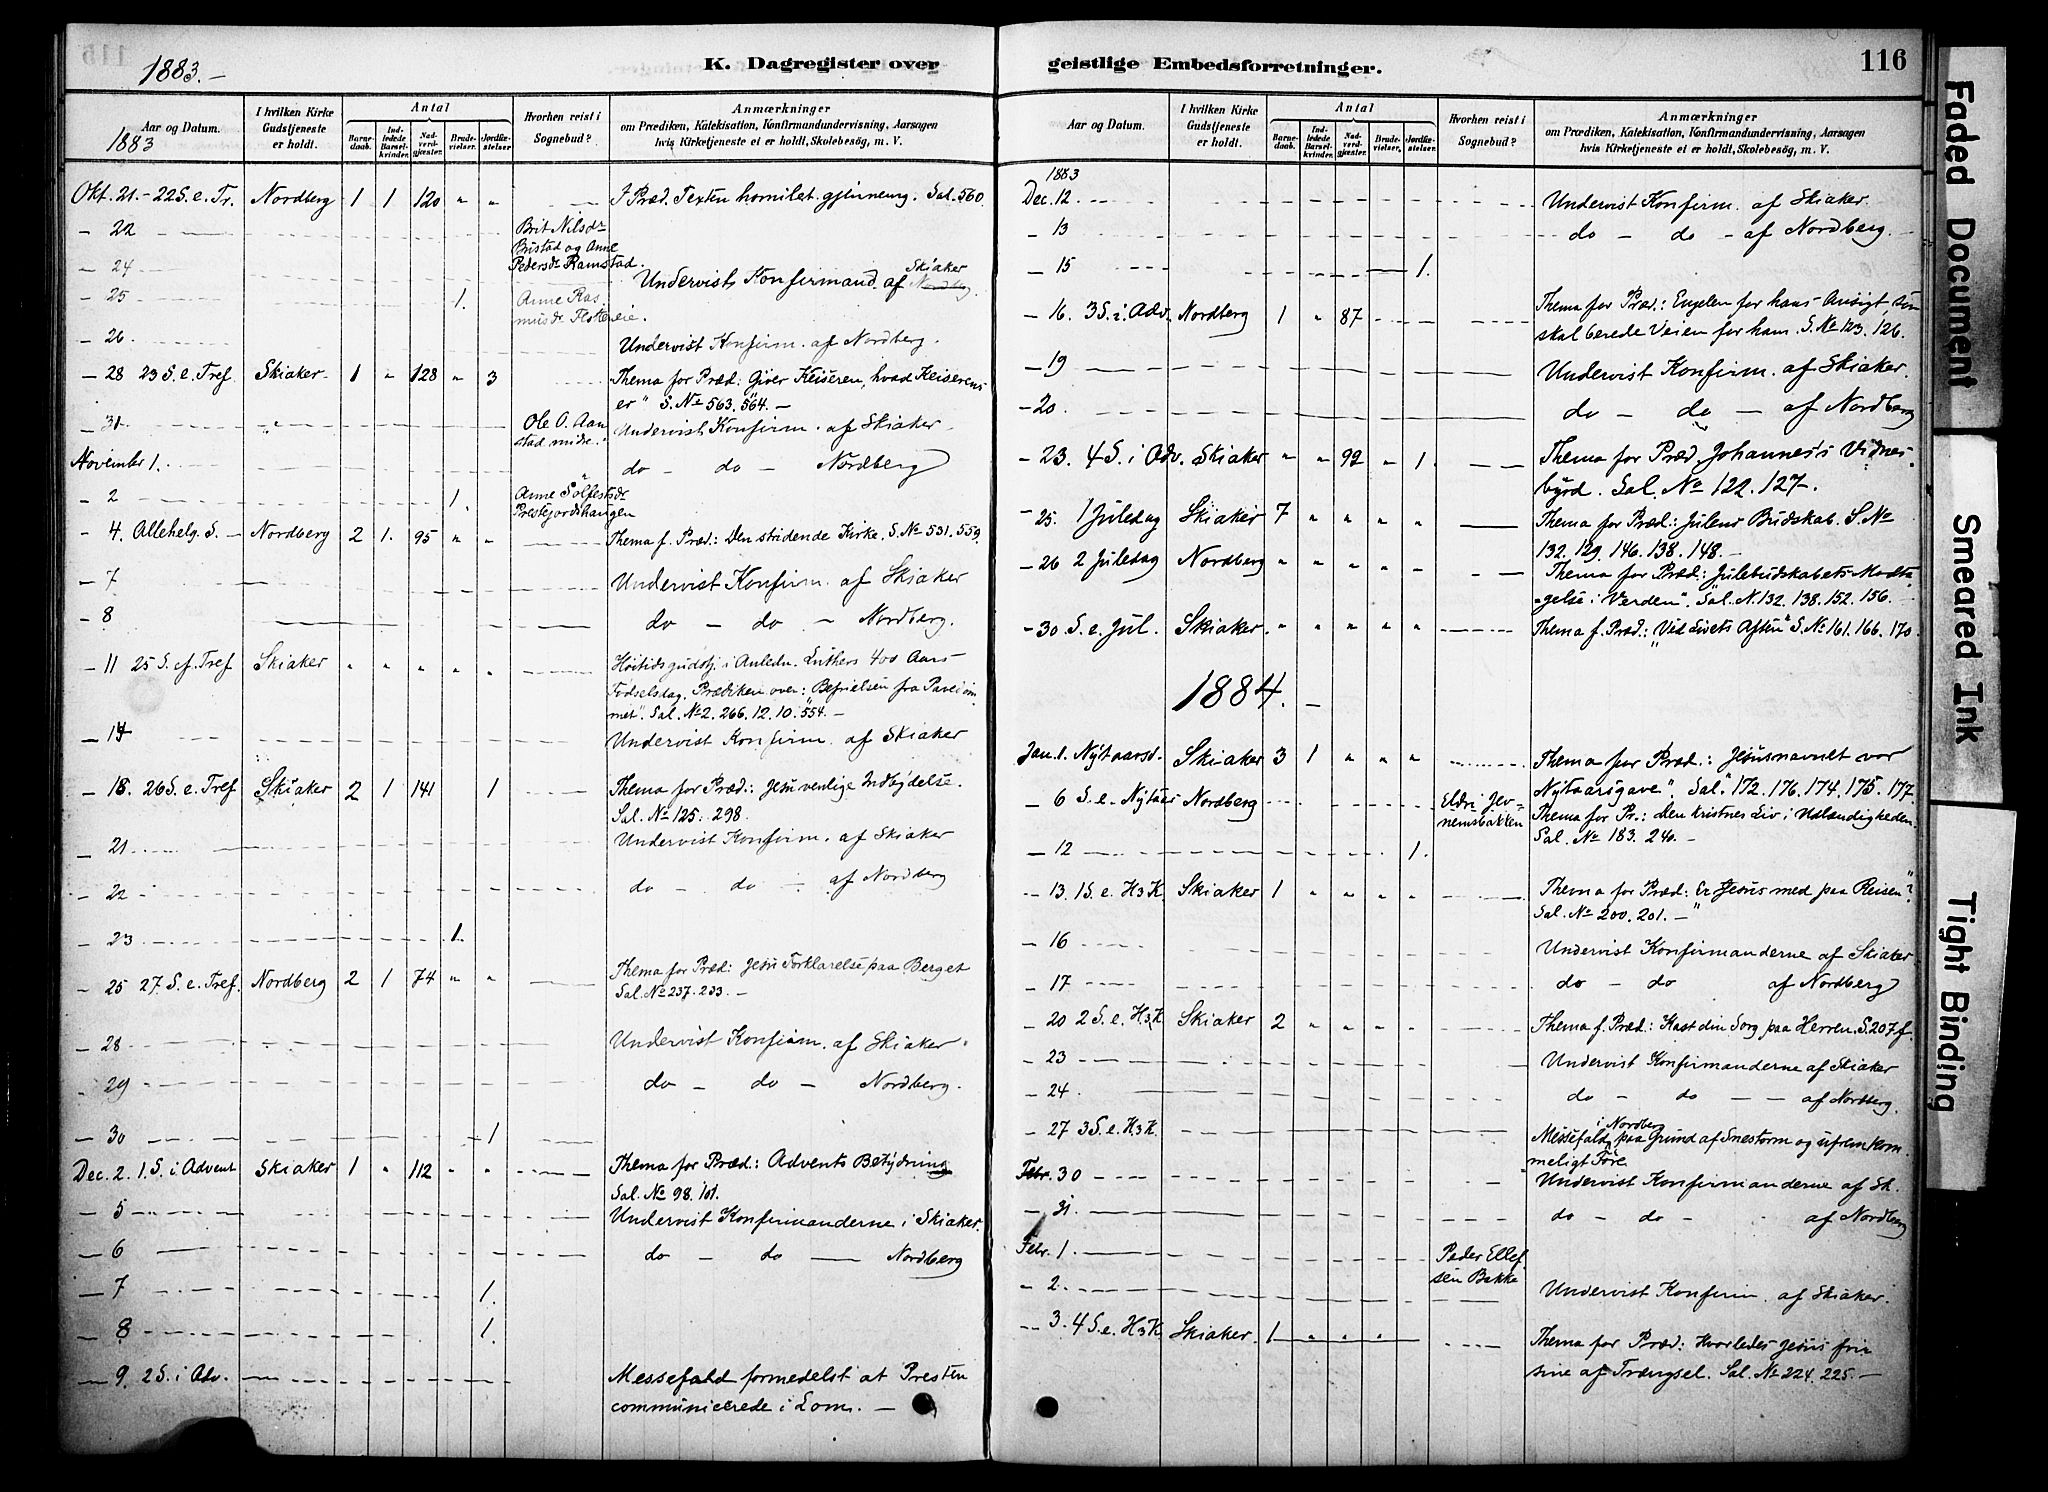 1883.-
K. Dagregister over
geistlige Embedsforretninger.
116
Aar og Datum.
1883
I hvilken Kirke Gudstjeneste er holdt.
Antal
Barnedaab.
Indledede Barselkvinder.
Nadverdgjæster.
Brudevielser.
Jordfæstelser
Hvorhen reist i Sognebud?
Anmærkninger
om Prædiken, Katekisation, Konfirmandundervisning, Aarsagen
hvis Kirketjeneste ei er holdt, Skolebesøg, m. V.
Okt. 21. - 22 S. e. Tr. Nordberg 1 1 120 " " Præd. Texten homilet. gjennemg. Sal. 560
- 22 Brit Nilsdr Bustad og Anne
- 24 Pedersdr Ramstad. Undervist Konfirmand. af Skiaker Nordberg
- 25 1. Anne Rasmusdr
- 26 Undervist Konfirm. af Nordberg.
- 28 23 S. e. Tref. Skiaker 1 " 128 " 3 Thema for Præd: Giver Keiseren, hvad Keiserens
er" S. No 563. 564. -
- 31 Ole O. Aanstad Undervist Konfirm. af Skiaker
November 1. do - do - Nordberg
- 2 1. Anne Solfestsdr
Prestejordshaugen
- 4. Allehelg. S. - Nordberg 2 1. 95 " " Thema f. Præd: Den stridende Kirke. S. No 531. 559
- 7 Undervist Konfirm. af Skiaker
- 8 do - do - Nordberg.
- 11 25 S. e. Tref Skiaker " " " " " Høitidsgudstj. i Anledn. Luthers 400 Aars
Fødselsdag. Prædiken over: Befrielsen fra Pavedøm
met". Sal. No 2. 266. 12. 10. 554. -
- 14 Undervist Konfirm. af Skiaker
- 18. 26 S. e. Tref Skiaker 2 1 141 1 Thema for Præd: Jesu venlige Indbydelse.
Sal. No 125. 298.
- 21 Undervist Konfirm. af Skiaker
- 22 do - do - af Nordberg
- 23 1.
- 25 27. S. e. Tref. Nordberg 2 1 74 " " Thema for Præd: Jesu Forklarelse paa Berget
Sal. No 237. 233. -
- 28 Undervist Konfirm. af Skiaker.
- 29 do - do - Nordberg.
- 30 1
Dec. 2. 1. S. i Advent Skiaker 1 " 112 " " Thema for Præd: Advents Betydning
Sal. No 98. 101.
- 5 Undervist Konfirmanderne i Skiaker.
- 6 do - do - Nordberg
- 7 1.
- 8 1.
- 9. 2 S. i Adv. Messefald formedelst at Presten
communicerede i Lom. -
Aar og Datum.
I hvilken Kirke Gudstjeneste er holdt.
Antal
Barnedaab.
Indledede Barselkvinder.
Nadverdgjæster.
Brudevielser.
Jordfæstelser.
Hvorhen reist i Sognebud?
Anmærkninger
om Prædiken, Katekisation, Konfirmandundervisning, Aarsagen
hvis Kirketjeneste ei er holdt, Skolebesøg, m. V.
1883
Dec. 12 Undervist Konfirm. af Skiaker.
- 13 do - do - af Nordberg.
- 15 1.
- 16. 3 S. i. Adv. Nordberg 1 " 87 Thema for Præd: Engelen for hans Ansigt, som
skal berede Veien for ham. S. No 123. 126.
- 19 Undervist Konfirm. af Skiaker.
- 20. do - do - af Nordberg
- 23. 4 S. i Adv. Skiaker " " 92 " 1. Thema for Præd Johannes's Vidnes-
byrd. Sal. No 122. 127.
- 25. 1 Juledag Skiaker 7 " " " " Thema for Præd: Julens Budskab. S. No
132. 129. 146. 138. 148. -
- 26 2 Juledag Nordberg " " " " " Thema for Præd: Julebudskabets Modta-
gelse i Verden". Sal. N. 132. 138. 152. 156.
- 30 S. e. Jul. Skiaker. " " " " " Thema f. Præd: "Ved Livets Aften" S. No 161. 166. 170.
1884. -
Jan. 1. Nytaarsd. Skiaker 3 1 " " " Thema for Præd: Jesusnavnet vor
Nytaarsgave". Sal. 172. 176. 174. 175. 177.
- 6 S. e. Nytaar Nordberg Eldri Jevnemsbakken Thema for Pr.: Den kristnes Liv i Udlændigheden.
Sal. No 183. 240. -
- 12 1.
- 13. 1 S. e. H3K. Skiaker 1 " " " " Thema for Præd: Er Jesus med paa Reisen?"
Sal. No 200. 201. -
- 16 Undervist Konfirmanderne af Skiaker
- 17 do - do af Nordberg
- 20 2 S. e. H3K. Skiaker 2 " " " " Thema f. Præd: Kast din Sorg paa Herren. S. 207 f.
- 23 Undervist Konfirmanderne af Skiaker
- 24 do - do - - af Nordberg.
- 27 3 S. e. H3K. Messefald i Nordberg paa Grund af Snestorm og ufremkom-
meligt Føre
Febr. 30 Undervist Konfirmanderne af Sk.
- 31. do - do - af Nordberg
Febr. 1. Peder Ellefsen Bakke
- 2. Undervist Konfirm. af Skiaker.
- 3. 4 S. e. H3K Skiaker. 1 " " Thema for Præd: Hvorledes Jesus frir
sine af Trængsel. Sal. No 224. 225. -
Faded Document
Smeared Ink
Tight Binding